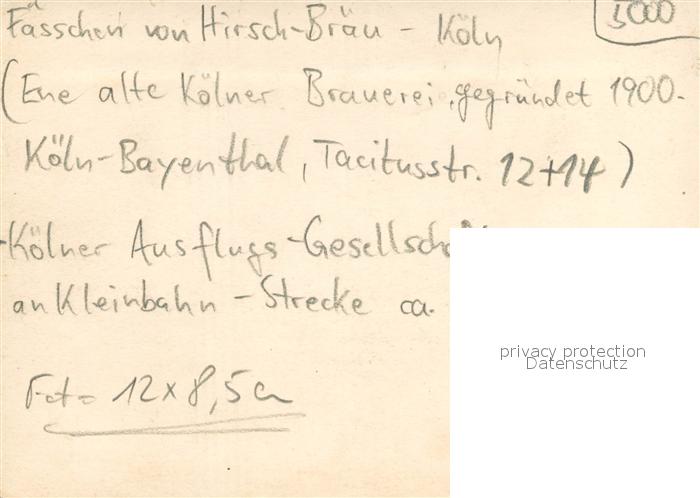 5000
Fässchen von Hirsch-Bräu - Köln
(Ene alte Kölner Brauerei, gegründet 1900.
Köln-Bayenthal, Tacitusstr. 12+14)
-Kölner Ausflugs-Gesellscha
an Kleinbahn - Strecke ca.
Foto 12 x 8,5 cm
privacy protection
Datenschutz